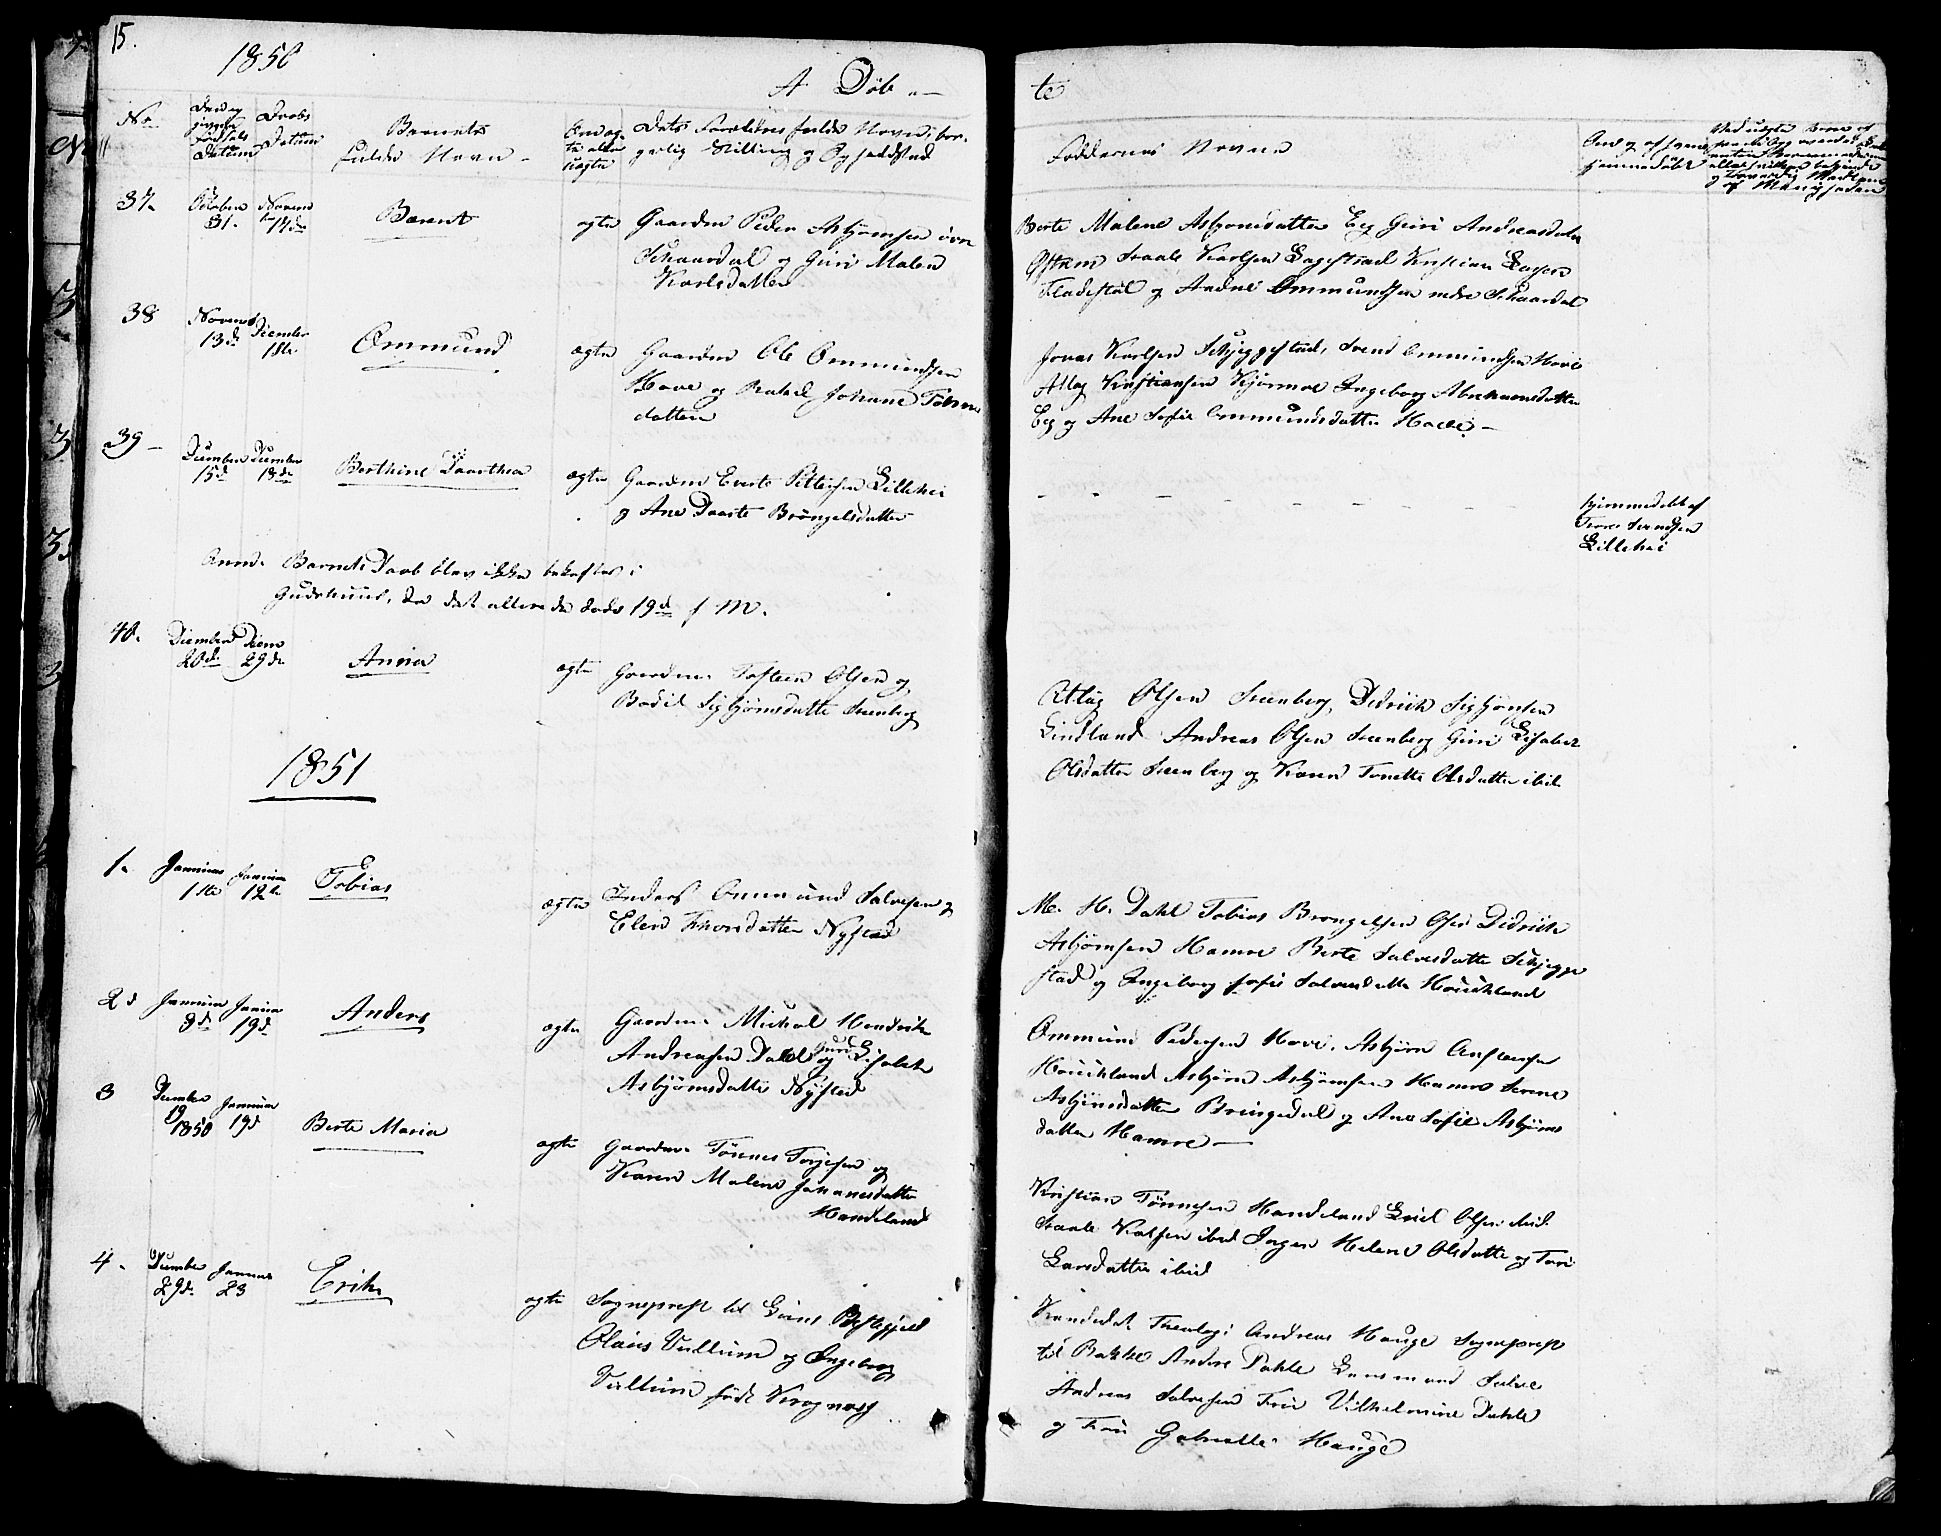 15.
1850
A Døb =
te
No
Dåbs
Datum
Barnets
fulde Navn
Dets Forældres fulde Navn, bor-
gerlig Stilling og Opholdsted
Faddernes Navne
37.
31.
Novem
14de
Bernt
ægte
Gaardm Peder Asbjørnsen øvre
Skaardal og Guri Malen
Karlsdatter
Berte Malene Asbjørnsdatter Eeg Guri Andreasdatter
Staale Karlsen Lagestrad Kristian
og Andreas Ommundsen nedre Skaardal
38
Novemb
13de
Decembr
18de
Ommund
ægte
Gaardm Ole Ommundsen
Hove og Rakel Johane Tobias
datter
Jonas Karlsen Skjeggestad, Svend Ommundsen Hove
Atlag Kristiansen Kjørmoe Ingeborg Abrahamsdatter
Eeg og Ane Sofie Ommundsdatter Hove. —
39 —
December
15de
December
18de
Berthine Daarthea
ægte
Gaardm Evert Pettersen Lillehei
og Ane Daarte Brøngelsdatter
hjemmedøbt af
Svendsen
Lillehei
Anm. Barnets Daab blev ikke bekræftet i
Gudshuus, da det allerede døde 19de s. M.
40.
December
20de
Decem
29de
Anna
ægte
Gaardm. Tosteen Olsen og
Bodil Sigbjørnsdatter Steenberg
Atlag Olsen Steenberg, Didrik Sigbjørnsen
Lindland Andreas Olsen Steenberg Guri Elisabet
Olsdatter Steenberg og Karen Tonette Olsdatter ibid.
1851
1.
Januar
1ste
Januar
12te
Tobias
ægte
Inderst Ommund Salvesen og
Elen Thorsdatter Nysted
M. H. Dahl Tobias Brøngelsen Didrik
Asbjørnsen Hamre Berte Salvesdatter Skjegge
stad og Ingeborg Sofie Salvesdatter Houkland
2d
Januar
3de
Januar
19de
Anders
ægte
Gaardm. Mickal Hendrik
Andreasen Dahl og Guri Elisabet
Asbjørnsdatter Nysted
Ommund Pedersen Hove, Asbjørn
Houkland Asbjørn Asbjørnsen Hamre Serene
Asbjørnsdatter Bringedal og Ane Sofie Asbjørns
datter Hamre —
3
December
19
1850
Januar
19de
Berte Maria
ægte
Gaardm. Tønnes Torjesen og
Karen Malene Johanesdatter
Handeland
Kristian Tønnesen Handeland Emil Olsen ibid.
Staale Karlsen ibid Inger Helene Olsdatter og Tori
Larsdatter ibid
4.
December
29de
Januar
23
Erik
ægte
Sogneprest til Lunds Prestegjeld
Olaus Vullum og Ingeborg
Vullum født Kragnæss
Kandidat Theologi Andreas Hauge Sogneprest
til Bakke Anders Dahle Lensmand Salve
Andreas Salvesen Fru Vilhelmine Dahle
og Fru Gabrielle Hauge